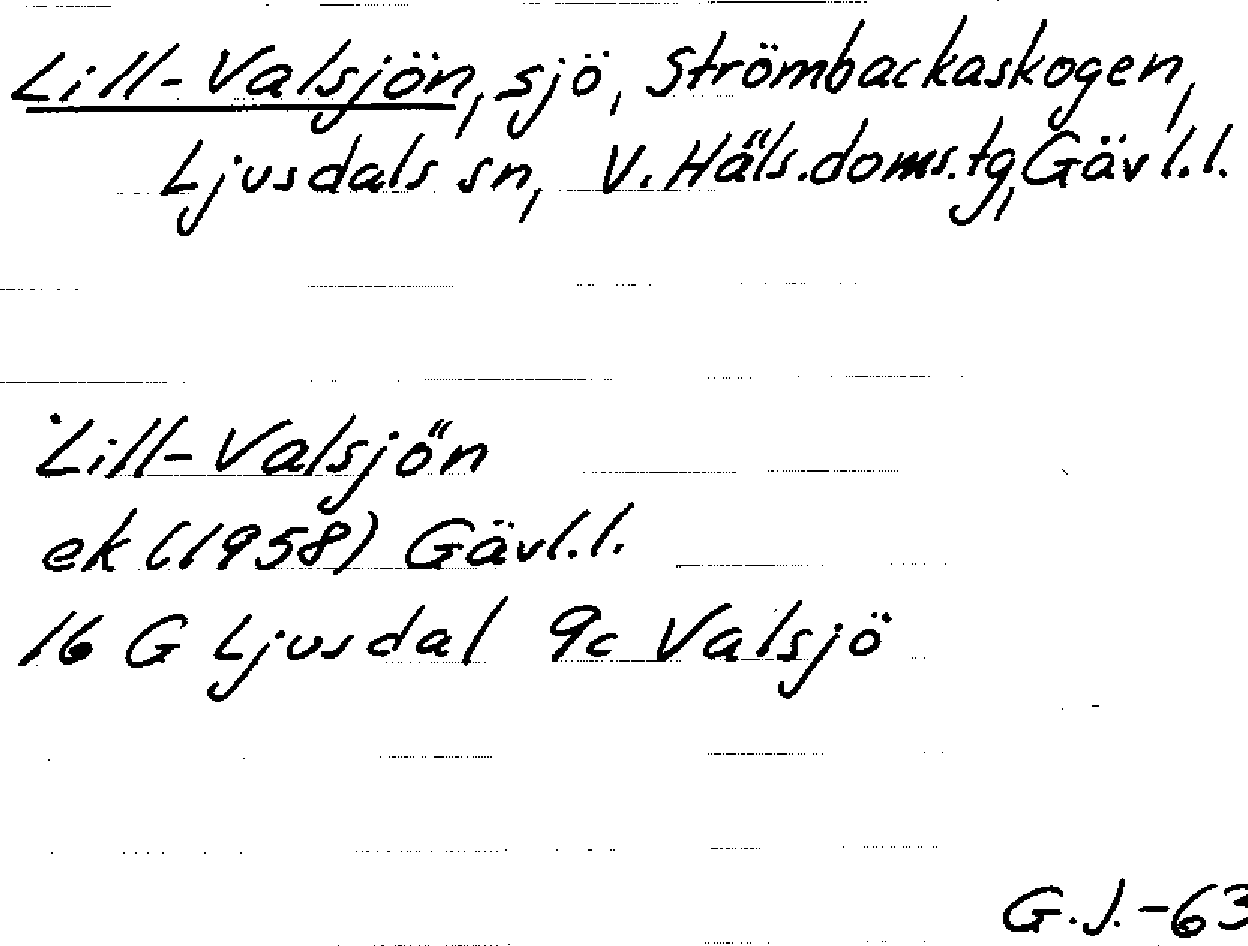 Lill-Valsjön, sjö, Strömbackaskogen,
Ljusdals sn, V. Häls. doms. tg, Gävl.l.
Lill-Valsjön
ek (1958) Gävl.l.
16 G Ljusdal 9c Valsjö
G.J.-63